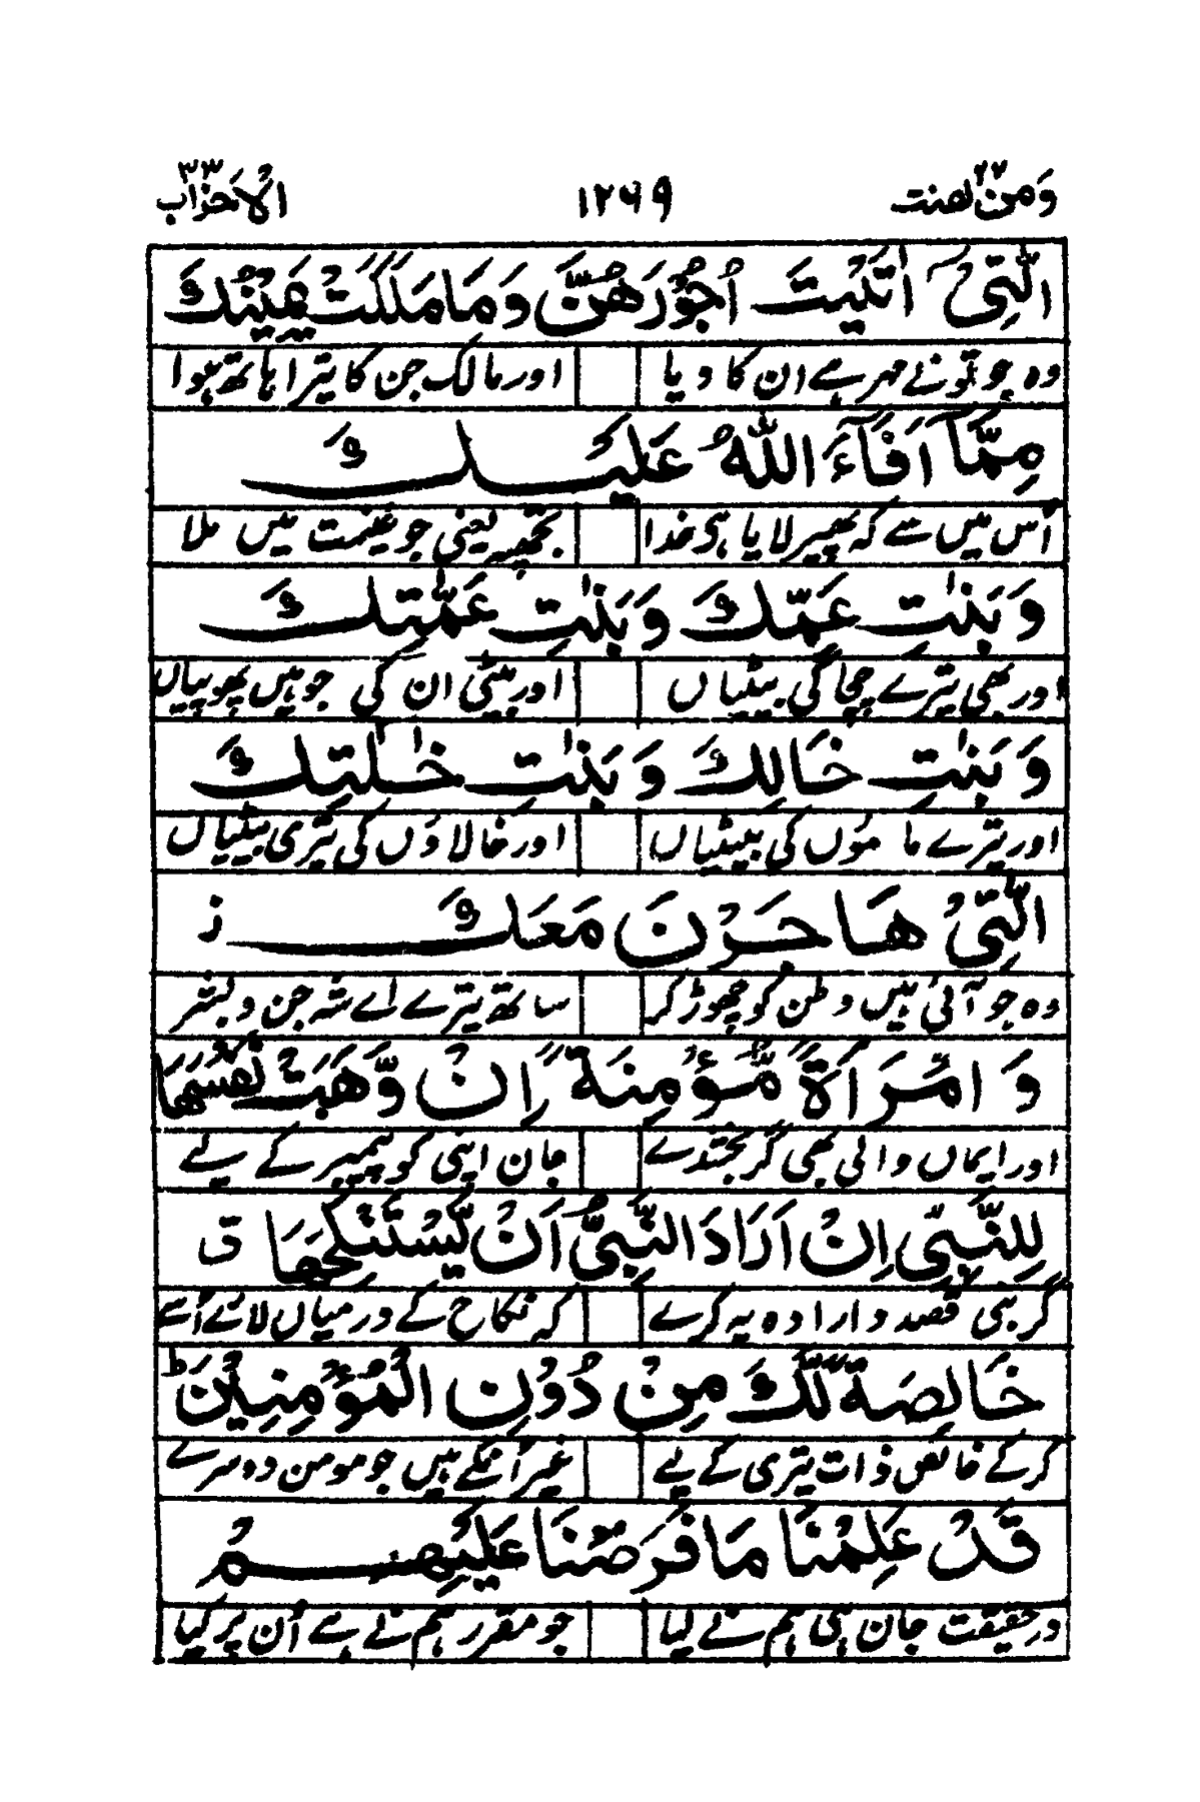 وَمَنْ يَّقْنُتْ ٢٢ ١٢٦٩ الْاَحْزَاب ٣٣
الّٰتِيْٓ اٰتَيْتَ اُجُوْرَهُنَّ وَمَا مَلَكَتْ يَمِيْنُكَ
وہ جو تونے مہر ہے ان کا دیا اور مالک جن کا تیرا ہاتھ ہوا
مِمَّآ اَفَآءَ اللّٰهُ عَلَيْكَ
اُس میں سے کہ پھیر لایا ہی خدا تجھپہ یعنی جو غنیمت میں ملا
وَ بَنٰتِ عَمِّكَ وَ بَنٰتِ عَمّٰتِكَ
اور بھی تیرے چچا کی بیٹیاں اور بیٹی ان کی جو ہیں پھوپیاں
وَ بَنٰتِ خَالِكَ وَ بَنٰتِ خٰلٰتِكَ
اور تیرے ماموں کی بیٹیاں اور خالاؤں کی تیری بیٹیاں
الّٰتِيْ هَاجَرْنَ مَعَكَ ز
وہ جو آئی ہیں وطن کو چھوڑ کر ساتھ تیرے اے شہ جن و بشر
وَ امْرَاَةً مُّؤْمِنَةً اِنْ وَّهَبَتْ نَفْسَهَا
اور ایماں والی بھی گر بخشدے جان اپنی کو پیمبر کے لیے
لِلنَّبِيِّ اِنْ اَرَادَ النَّبِيُّ اَنْ يَّسْتَنْكِحَهَا ق
گر نبی قصد و ارادہ یہ کرے کہ نکاح کے درمیاں لائے اُسے
خَالِصَةً لَّكَ مِنْ دُوْنِ الْمُؤْمِنِيْنَ ط
کر کے خالص ذات تیری کے لیے غیر اُنکے ہیں جو مومن دوسرے
قَدْ عَلِمْنَا مَا فَرَضْنَا عَلَيْهِمْ
درحقیقت جان ہی ہم نے لیا جو مقرر ہم نے ہے اُن پر کیا